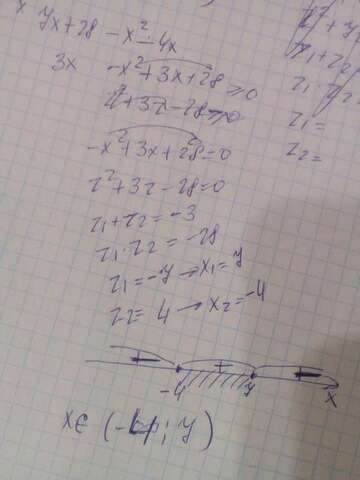 7x+28 - x²-4x
3x -x²+3x+28≥0
z²+3z-28≥0
-x²+3x+28=0
z²+3z-28=0
z₁+z₂=-3
z₁·z₂=-28
z₁=-7→x₁=7
z₂=4→x₂=-4
- + -
-4 7 x
x∈(-4;7)
z₁+z₂
z₁·z₂
z₁=
z₂=